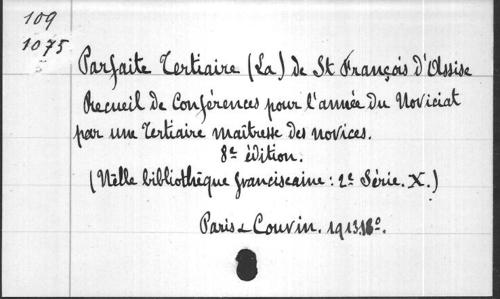 109
1075
Parfaite Tertiaire (La) de St François d'Assise
Recueil de Conférences pour l'année du Noviciat
par une Tertiaire maîtresse des novices.
8e édition.
(Nelle bibliothèque franciscaine: 2e Série. X.)
Paris & Couvin. 1913.18o.